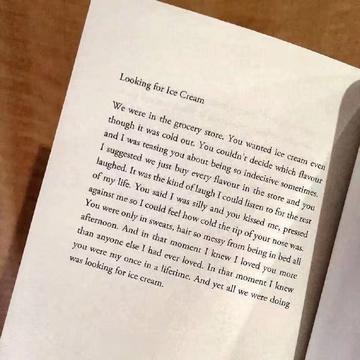 Looking for Ice Cream
We were in the grocery store. You wanted ice cream even
though it was cold out. You couldn't decide which flavour
and I was teasing you about being so indecisive sometimes.
I suggested we just buy every flavour in the store and you
laughed. It was the kind of laugh I could listen to for the rest
of my life. You said I was silly and you kissed me, pressed
against me so I could feel how cold the tip of your nose was.
You were only in sweats, hair so messy from being in bed all
afternoon. And in that moment I knew I loved you more
than anyone else I had ever loved. In that moment I knew
you were my once in a lifetime. And yet all we were doing
was looking for ice cream.